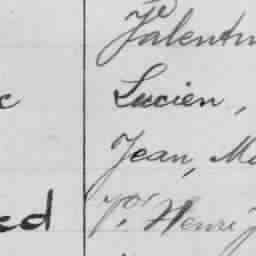 Valentin
c Lucien,
Jean, Ma
ed Henri J